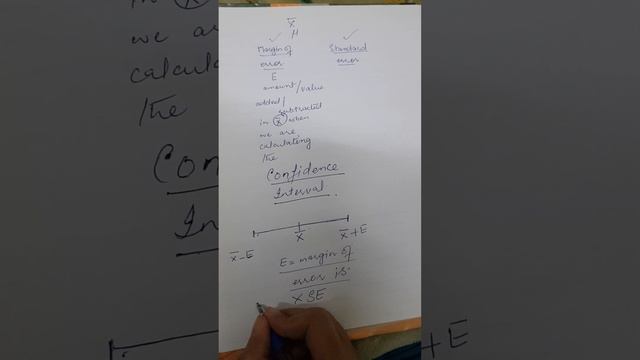 x̄
μ
✓ ✓
Margin of Standard
error error
E
amount/value
added/
subtracted
in x̄ when
we are
calculating
the
Confidence
Interval.
x̄-E x̄ x̄+E
E = margin of
error is
× SE